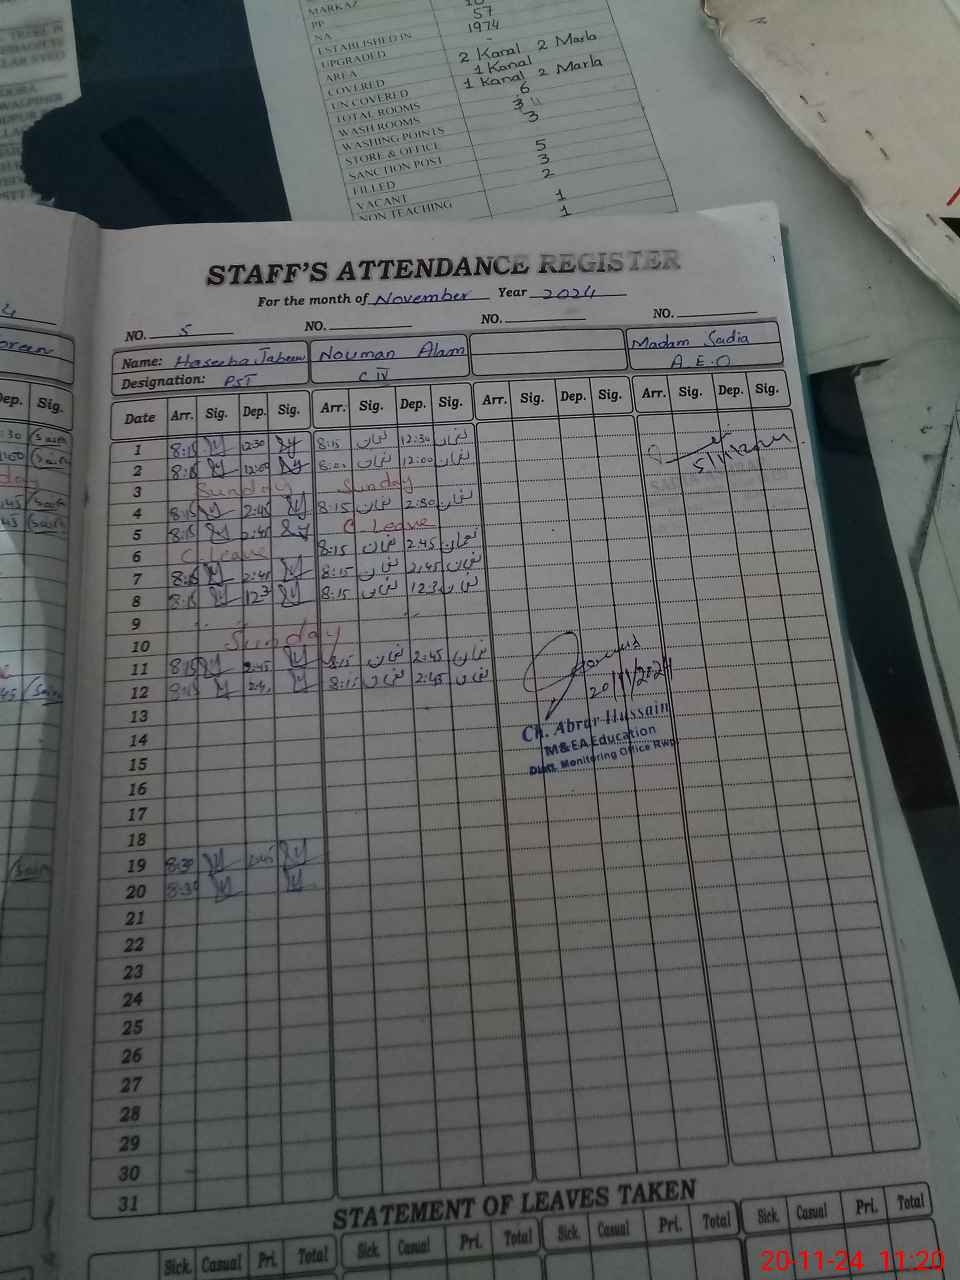 MARKAZ
PP 57
NA 1974
ESTABLISHED IN -
UPGRADED 2 Kanal 2 Marla
AREA 1 Kanal
COVERED 1 Kanal 2 Marla
UN COVERED 6
TOTAL ROOMS 3
WASH ROOMS 3
WASHING POINTS
STORE & OFFICE 5
SANCTION POST 3
FILLED 2
VACANT 1
NON TEACHING 1
STAFF'S ATTENDANCE REGISTER
For the month of November Year 2024
NO. 5 NO. NO. NO.
Name: Haseeba Jabeen Nouman Alam Madam Sadia
Designation: PST C IV A.E.O
Dep. Sig. Date Arr. Sig. Dep. Sig. Arr. Sig. Dep. Sig. Arr. Sig. Dep. Sig. Arr. Sig. Dep. Sig.
1 8:15 12:30 8:15 نعمان 12:30 نعمان
2 8:15 12:00 8:01 نعمان 12:00 نعمان 5/11/2024
3 Sunday Sunday
4 8:15 2:45 8:15 نعمان 2:30 نعمان
5 8:15 2:45 C Leave
6 C Leave 8:15 نعمان 2:45 نعمان
7 8:15 2:45 8:15 نعمان 2:45 نعمان
8 8:15 8:15 نعمان نعمان
9
10 Sunday
11 8:15 2:45 8:15 نعمان 2:45 نعمان
12 8:15 8:15 نعمان 2:45 نعمان
20/11/2024
13
Ch. Abrar Hussain
14
M&EA Education
15
Distt. Monitoring Office Rwp.
16
17
18
19 8:30 2:45
20 8:30
21
22
23
24
25
26
27
28
29
30
31
STATEMENT OF LEAVES TAKEN
Sick Casual Pri. Total Sick Casual Pri. Total Sick Casual Pri. Total Sick Casual Pri. Total
20-11-24 11:20